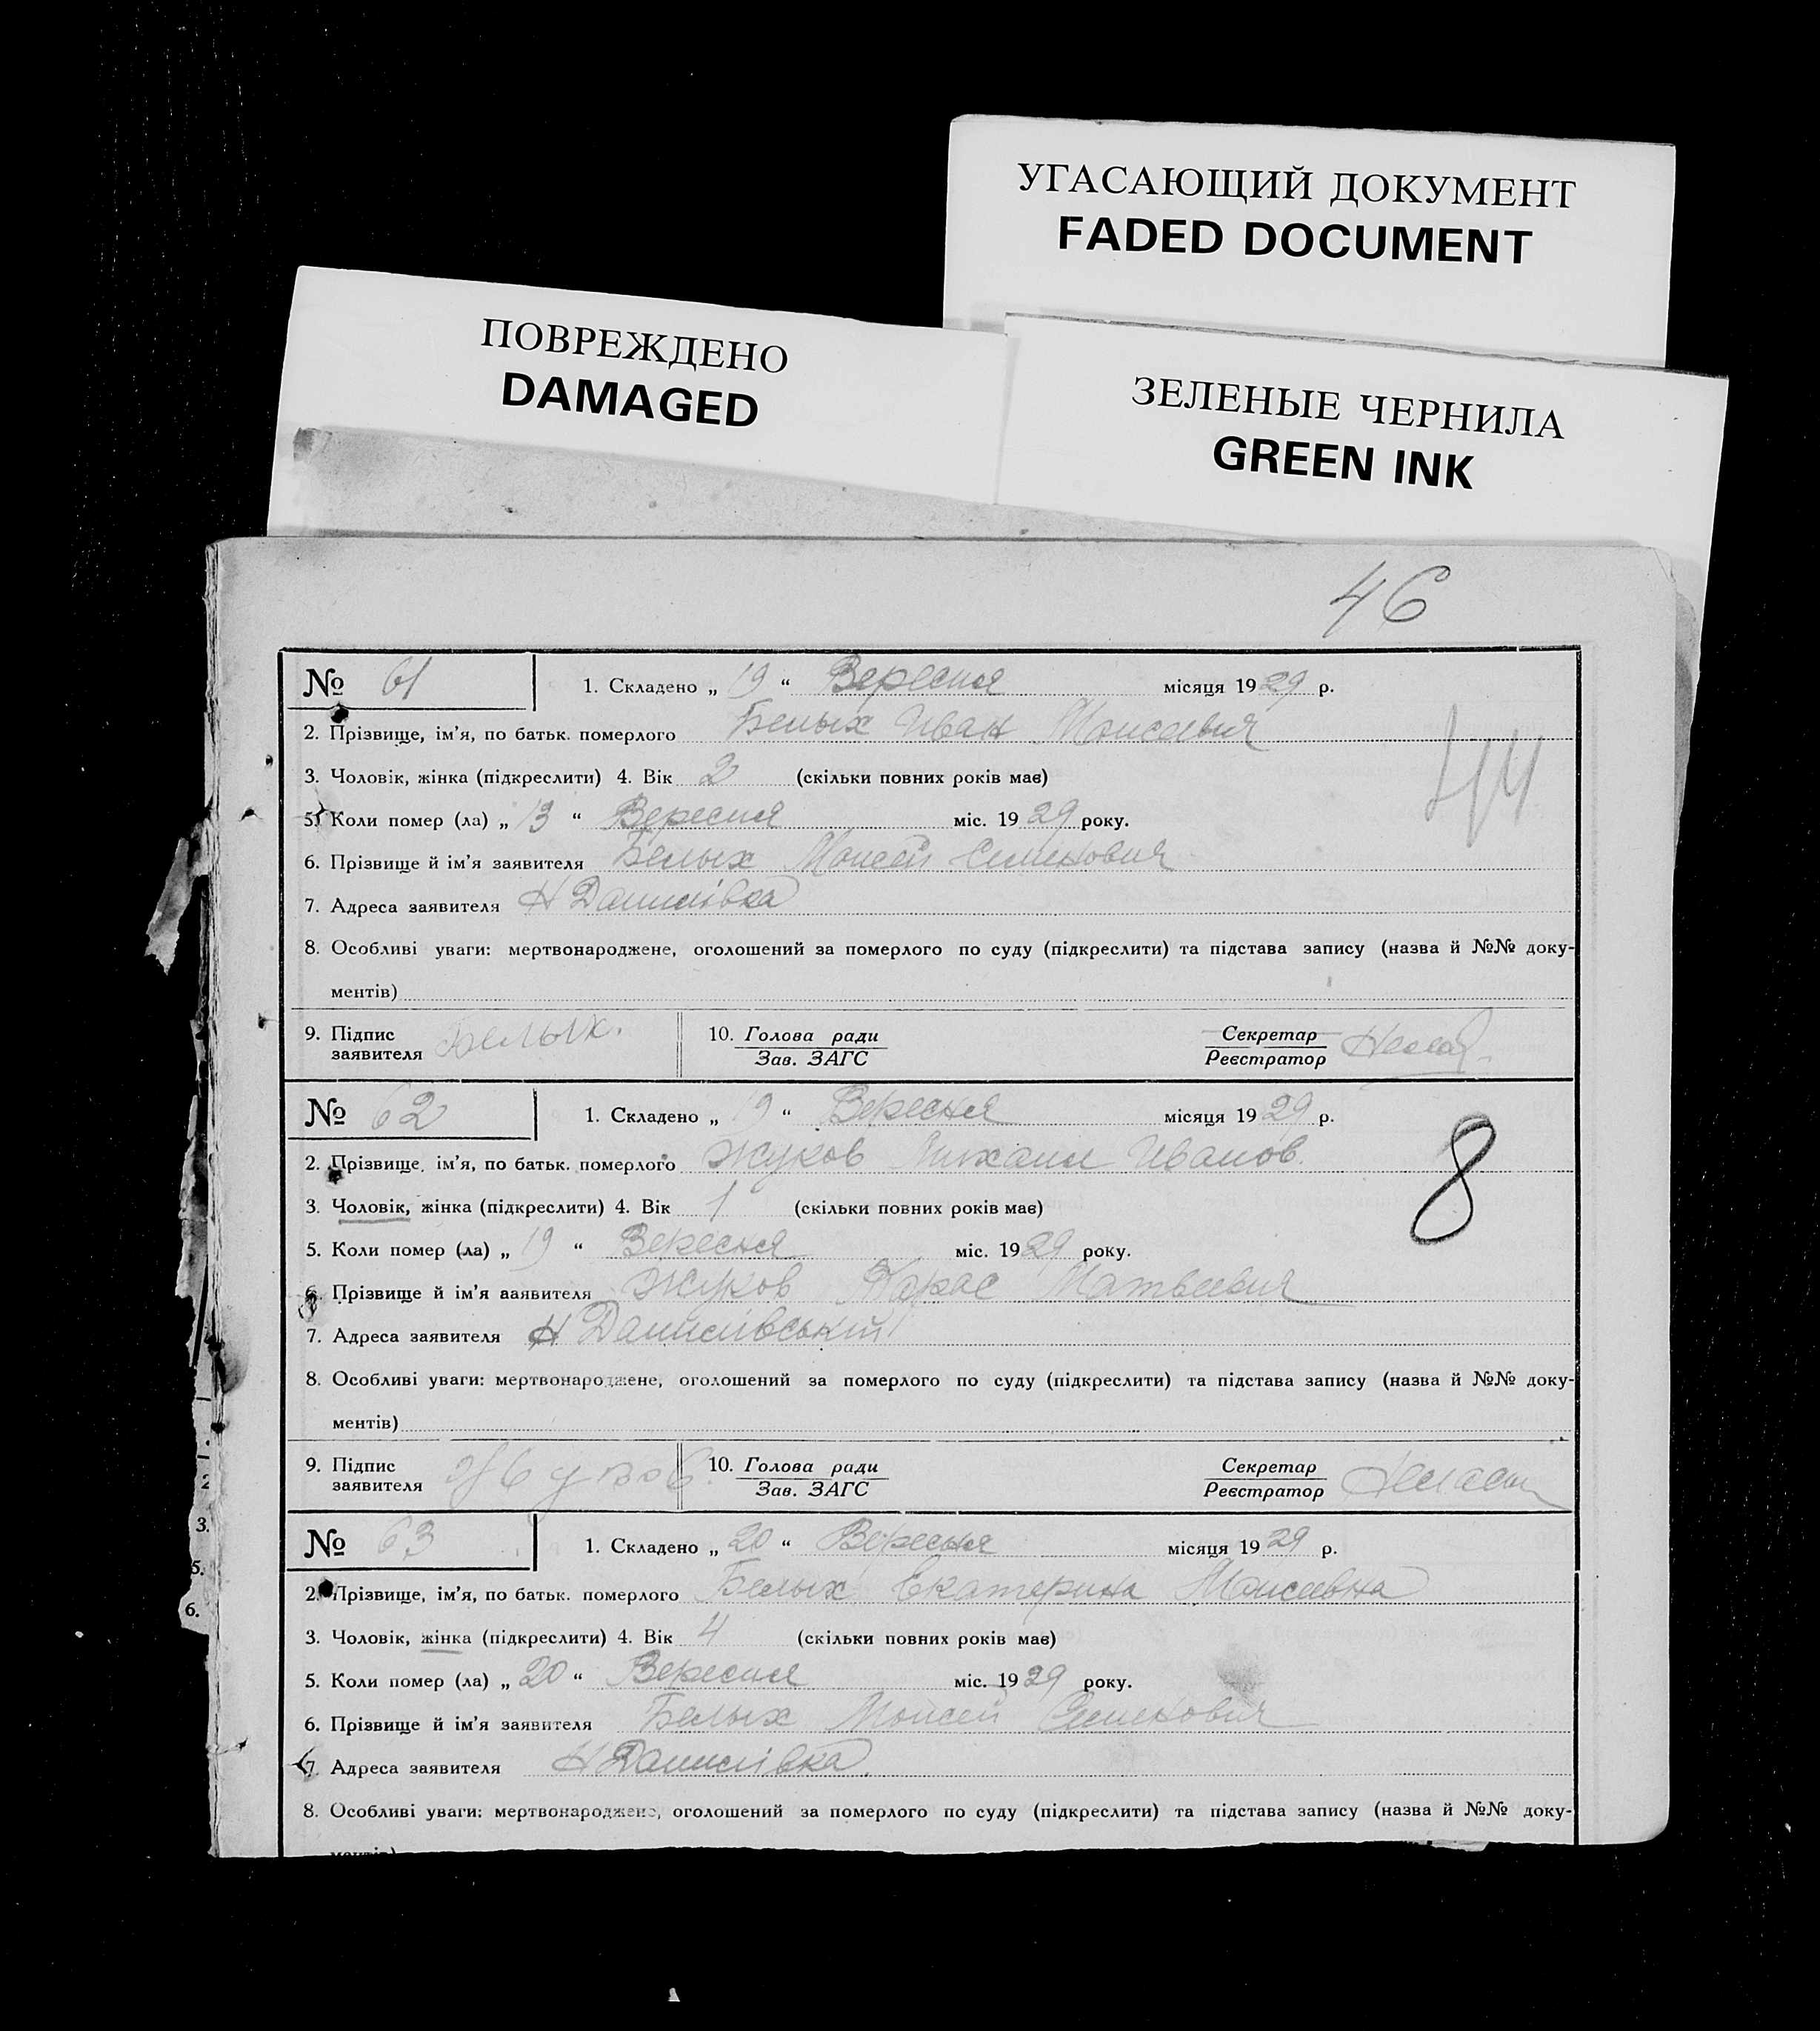 УГАСАЮЩИЙ ДОКУМЕНТ
FADED DOCUMENT
ПОВРЕЖДЕНО
DAMAGED
ЗЕЛЕНЫЕ ЧЕРНИЛА
GREEN INK
46
№ 61 1. Складено „ 19 “ Вересня місяця 1929 р.
2. Прізвище, ім'я, по батьк. померлого Белых Иван Моисеевич
3. Чоловік, жінка (підкреслити) 4. Вік 2 (скільки повних років має)
5. Коли помер (ла) „ 13 “ Вересня міс. 1929 року.
6. Прізвище й ім'я заявителя Белых Моисей Семенович
7. Адреса заявителя Н Данилівка
8. Особливі уваги: мертвонароджене, оголошений за померлого по суду (підкреслити) та підстава запису (назва й №№ доку-
ментів)
9. Підпис заявителя Белых. 10. Голова ради Зав. ЗАГС Секретар Реєстратор
№ 62 1. Складено „ 19 “ Вересня місяця 1929 р.
8
2. Прізвище, ім'я, по батьк. померлого Жуков Михаил Иванов.
3. Чоловік, жінка (підкреслити) 4. Вік 1 (скільки повних років має)
5. Коли помер (ла) „ 19 “ Вересня міс. 1929 року.
6. Прізвище й ім'я ааявителя Жуков Тарас Матвеевич
7. Адреса заявителя Н Данилівський
8. Особливі уваги: мертвонароджене, оголошений за померлого по суду (підкреслити) та підстава запису (назва й №№ доку-
ментів)
9. Підпис заявителя 10. Голова ради Зав. ЗАГС Секретар Реєстратор
№ 63 1. Складено „ 20 “ Вересня місяця 1929 р.
2. Прізвище, ім'я, по батьк. померлого Белых Екатерина Моисеевна
3. Чоловік, жінка (підкреслити) 4. Вік 4 (скільки повних років має)
5. Коли помер (ла) „ 20 “ Вересня міс. 1929 року.
6. Прізвище й ім'я заявителя Белых Моисей Семенович
7. Адреса заявителя Н Данилівка
8. Особливі уваги: мертвонароджене, оголошений за померлого по суду (підкреслити) та підстава запису (назва й №№ доку-